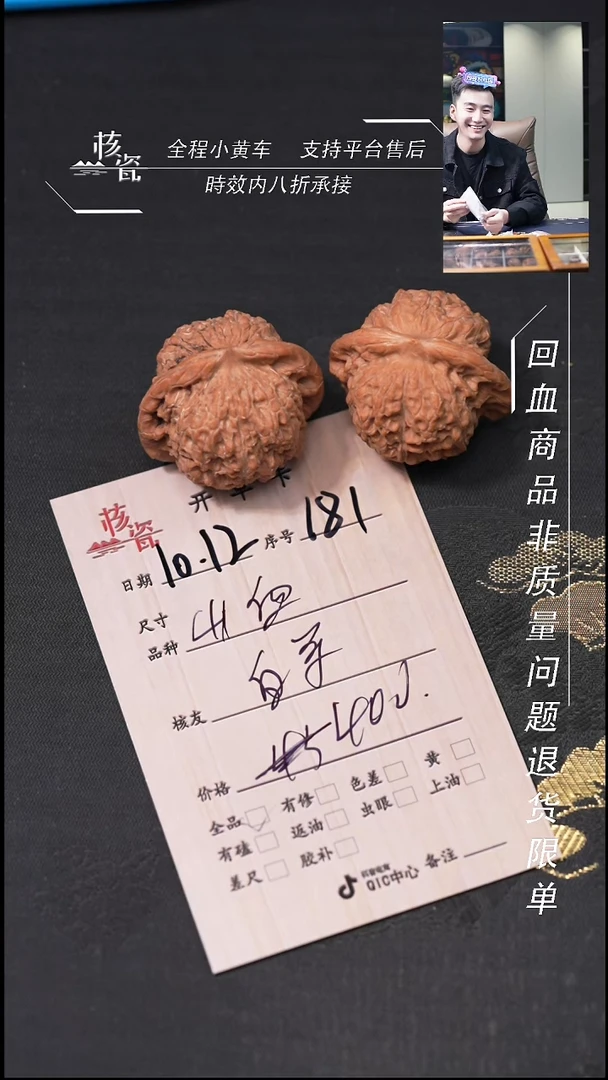 核瓷
全程小黄车 支持平台售后
時效内八折承接
回血商品非质量问题退货限单
核瓷
日期 10.12 序号 181
尺寸
品种
核友
价格
全品 有修 色差 黄
有磕 返油 虫眼 上油
差尺 胶补
抖音电商
QIC中心 备注